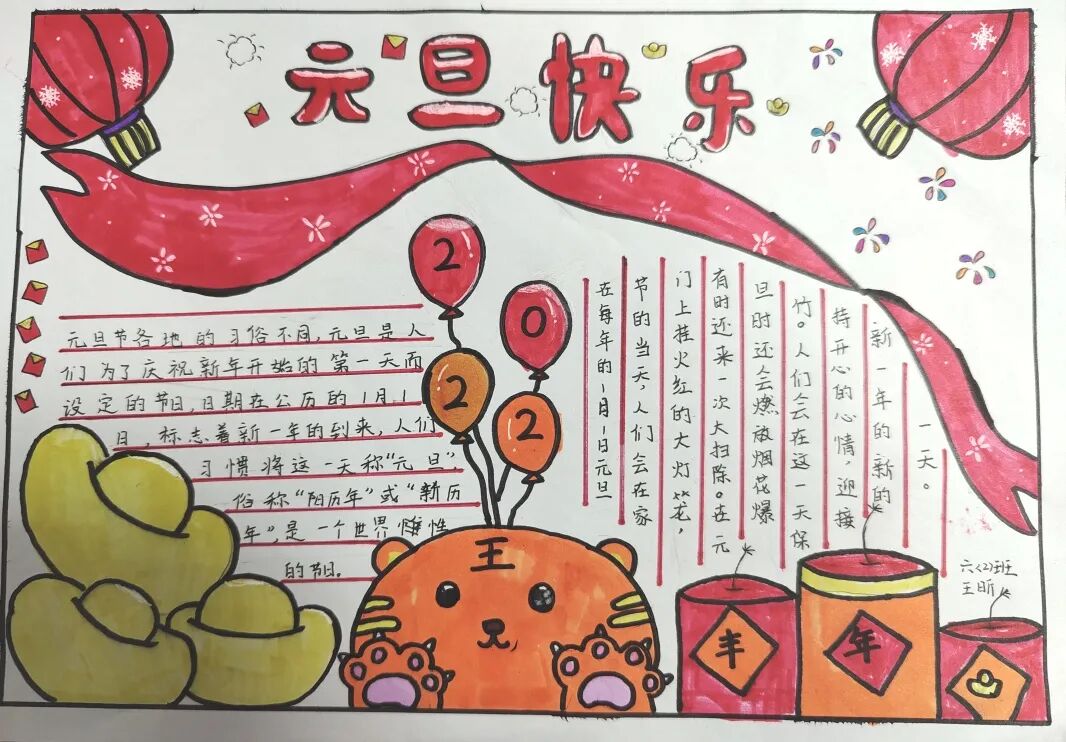 元旦快乐
2
0
2
2
元旦节各地的习俗不同,元旦是人
们为了庆祝新年开始的第一天而
设定的节日,日期在公历的1月1
日,标志着新一年的到来,人们
习惯将这一天称“元旦”
俗称“阳历年”或“新历
年”,是一个世界性
的节日。
在每年的1月1日元旦
节的当天,人们会在家
门上挂火红的大灯笼,
有时还来一次大扫除。在元
旦时还会燃放烟花爆
竹。人们会在这一天保
持开心的心情,迎接
新一年的新的
一天。
王
丰
年
六(2)班
王昕